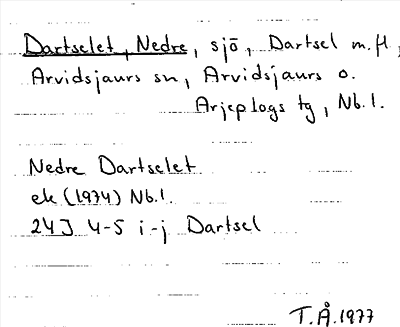 Dartselet, Nedre, sjö, Dartsel m.fl,
Arvidsjaurs sn, Arvidsjaurs o.
Arjeplogs tg, Nb.l.
Nedre Dartselet
ek (1974) Nb.l.
24J 4-5 i-j Dartsel
T.Å.1977